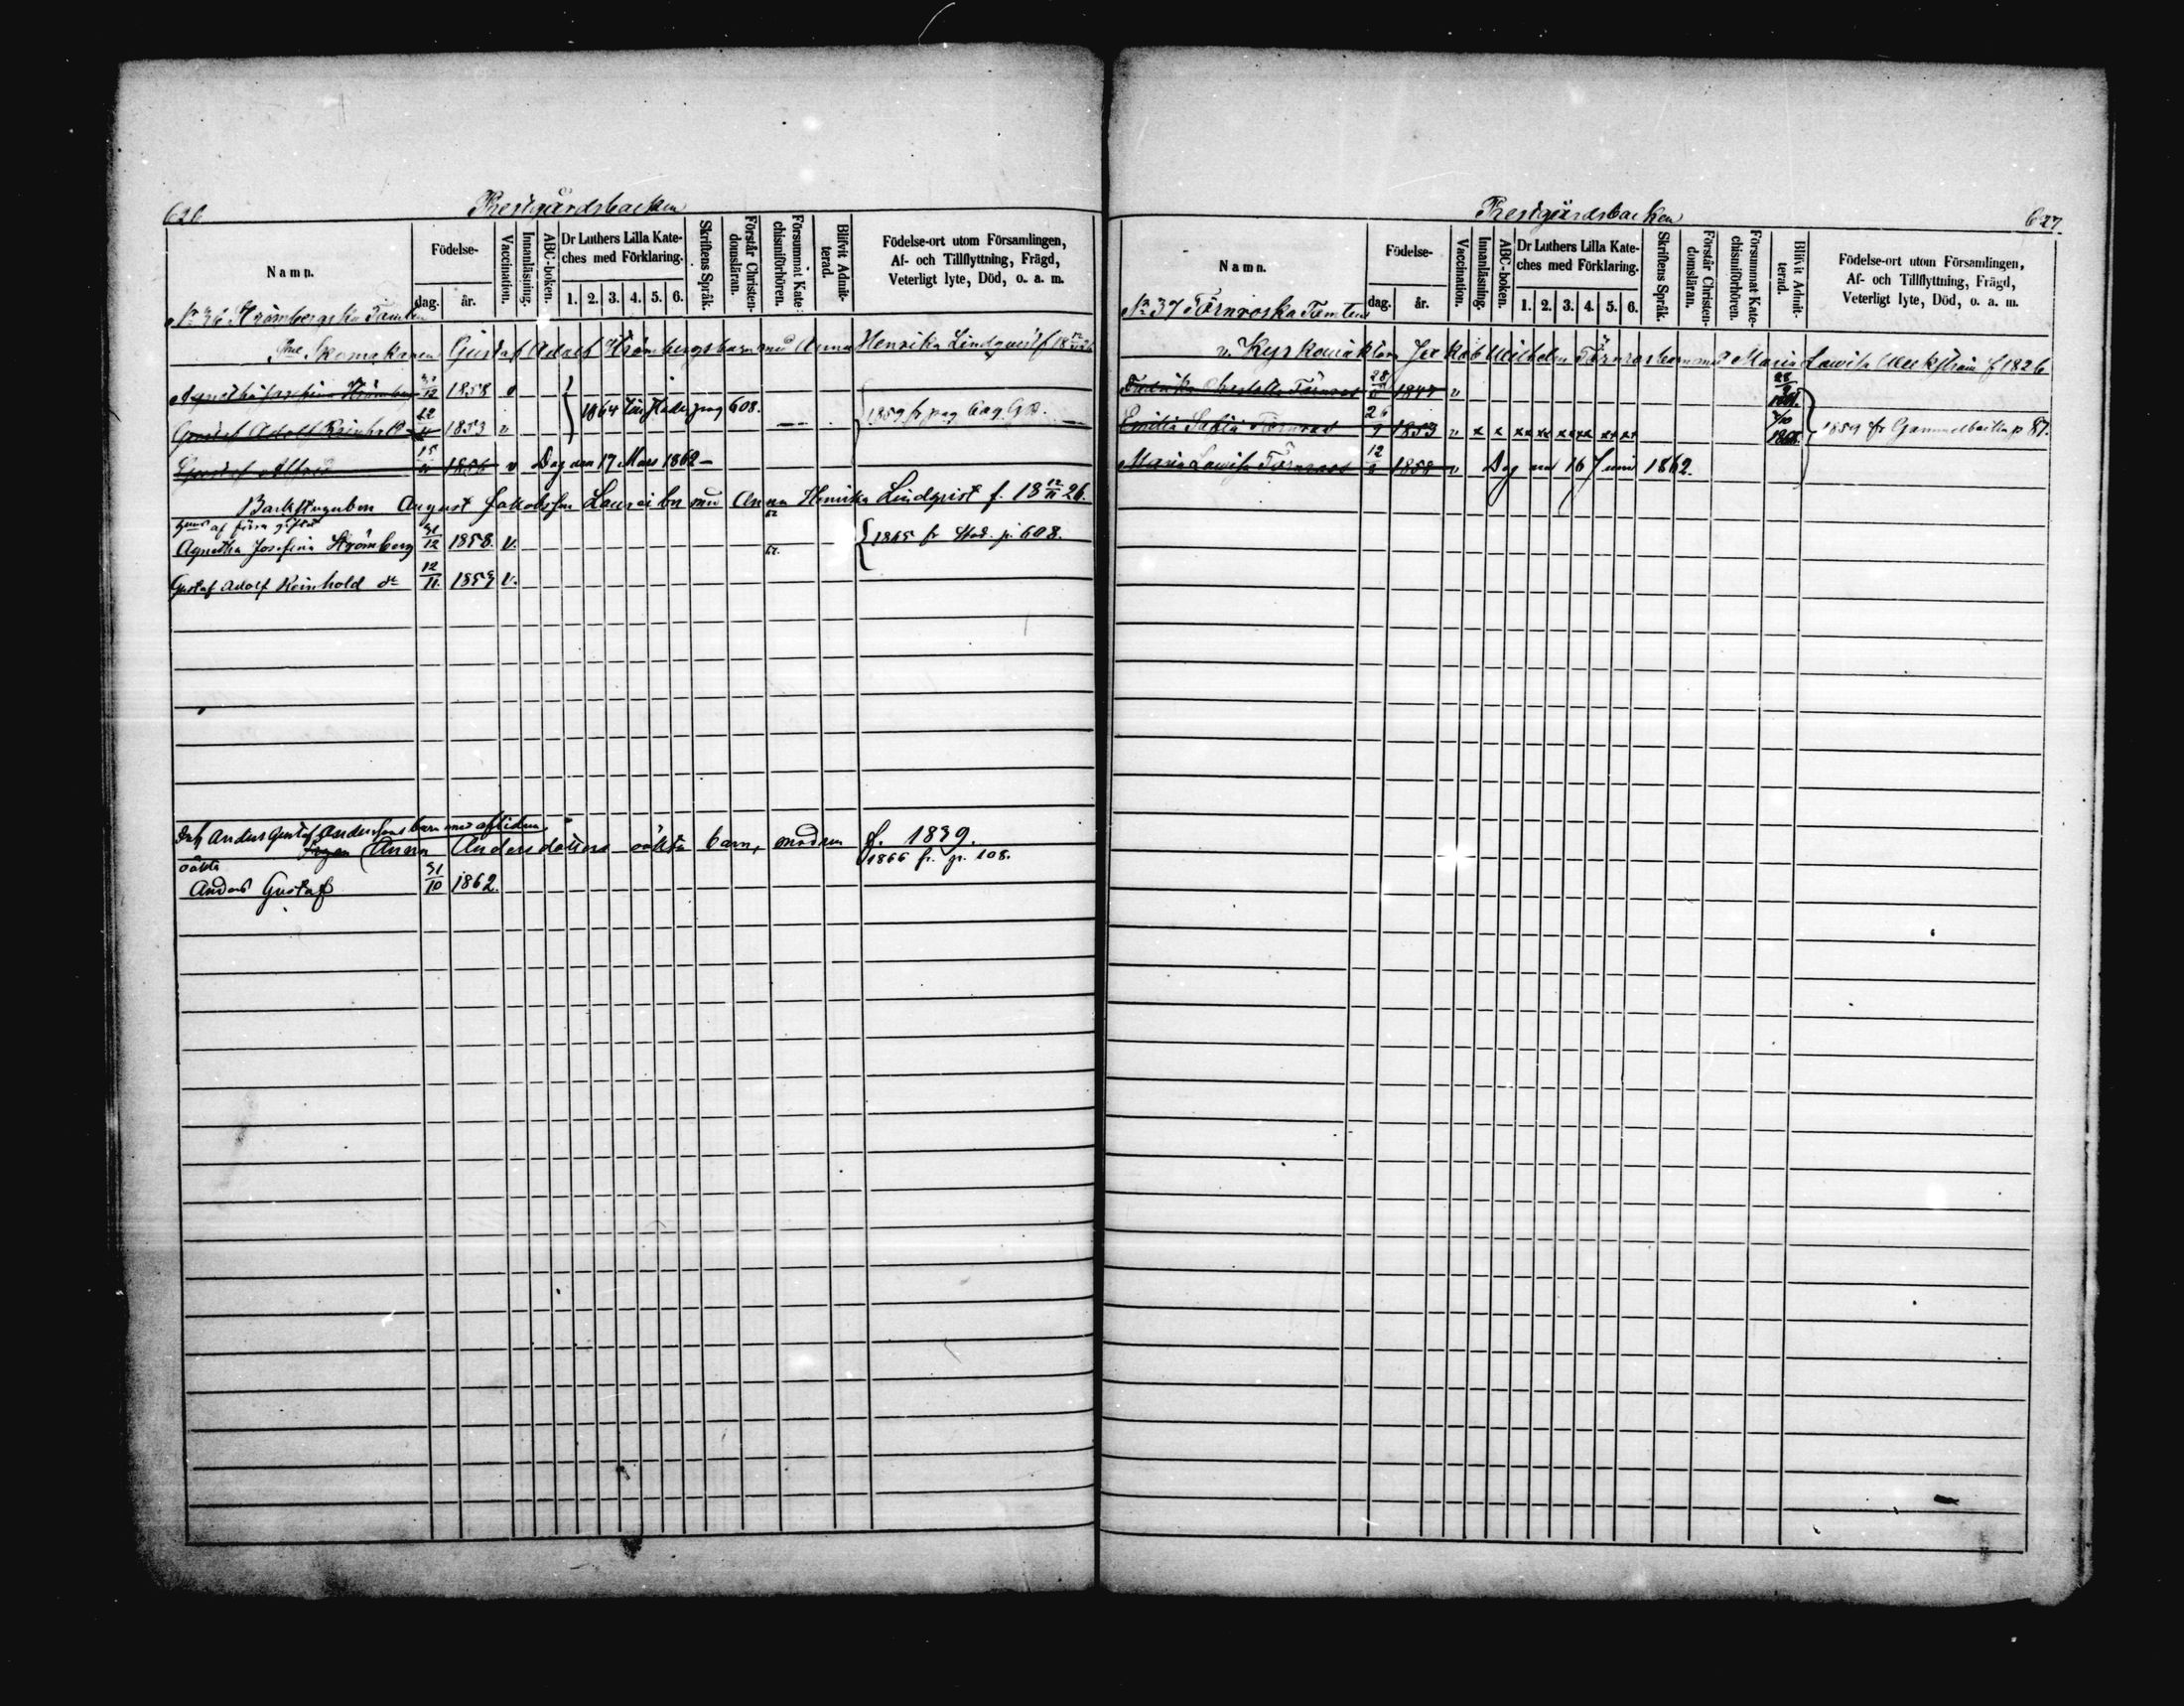 626
Prestgårdsbacken
Namn.
Födelse-
dag.
år.
Vaccination.
Innanläsning.
ABC-boken.
Dr Luthers Lilla Kate-
ches med Förklaring.
1. 2. 3. 4. 5. 6.
Skriftens Språk.
Förstår Christen-
domsläran.
Försummat Kate-
chismiförhören.
Blifvit Admit-
terad.
Födelse-ort utom Församlingen,
Af- och Tillflyttning, Frägd,
Veterligt lyte, Död, o. a. m.
No 36 Strömbergska Tomten
Skomakaren Gustaf Adolf Strömbergs barn med Anna Henrika Lindqvist f 18 12/11 26
Agnetha Josefina Strömberg 31/12 1858 v
1864 till Stad. pag 608.
Gustaf Adolf Reinhold 12/11 1853 v
1859 fr pag 609. GB.
Gustaf Alfred 15 1856 v Dog den 17 Mars 1862
Backstuguben August Jakobsson med Anna Henrika Lindqvist f. 18 12/11 26.
af förra giftet
Agnetha Josefina Strömberg 31/12 1858. v.
1865 fr Stad. p. 608.
Gustaf Adolf Reinhold do 12/11. 1859 v.
Anders Gustaf Anderssons barn med aflidna
Anna Andersdotters oäkta barn, modren f. 1839.
oäkta
1866 fr. p. 108.
Anders Gustaf 31/10 1862.
Prestgårdsbacken
627.
Namn.
Födelse-
dag.
år.
Vaccination.
Innanläsning.
ABC-boken.
Dr Luthers Lilla Kate-
ches med Förklaring.
1. 2. 3. 4. 5. 6.
Skriftens Språk.
Förstår Christen-
domsläran.
Försummat Kate-
chismiförhören.
Blifvit Admit-
terad.
Födelse-ort utom Församlingen,
Af- och Tillflyttning, Frägd,
Veterligt lyte, Död, o. a. m.
No 37 Törnroska Tomten
Jakob Wilhelm Törnros barn med Maria Lovisa f 1826
Charlotta Törnroos 28 v
Emilia Sofia Törnroos 26/9 1853 v x x xx xx xx xx xx
1859 fr Gammelbacka p 87.
Maria Lovisa Törnroos 12 1858 v Dog den 16 Juni 1862.